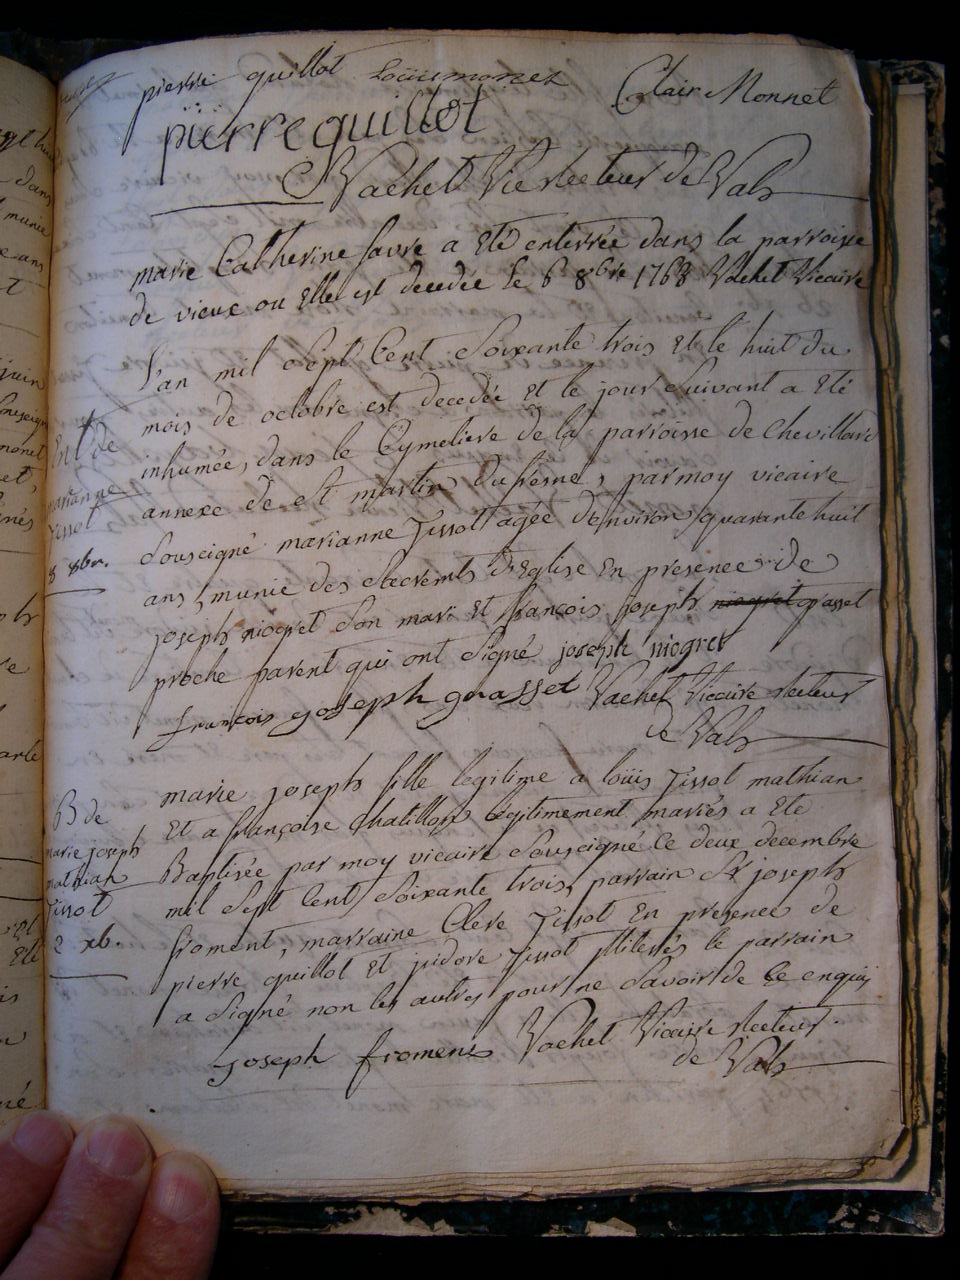 pierre quillot Loüismonet Clair Monnet
pierrequillot
Vachet Vic Recteur de Vals
marie Catherine favre a Eté enterrée dans la parroisse
de vieux ou Elle est decedée le 6 8bre 1763 Vachet Vicaire
L'an mil Sept Cent Soixante trois Et le huit du
mois de octobre est decedée Et le jour Suivant a Eté
inhumée, dans le Cymetiere de la parroisse de Chevillard
annexe de St martin Dufresne, par moy vicaire
Souscigné marianne Tissot agée Denviron quarante huit
ans, munie des Sacrements d'Eglise En presence de
joseph niogret Son mari Et françois joseph niogret grasset
proche parent qui ont Signé joseph niogret
françois joseph grasset Vachet Vicaire Recteur
de Vals
Ent de
marianne
Tissot
8 8br.
marie joseph fille legitime a loüis Tissot mathian
Et a françoise Chatillon legitimement mariés a Eté
Baptisée par moy vicaire Souscigné le deux decembre
mil Sept Cent Soixante trois, parrain Sr joseph
froment, marraine Clere Tissot En presence de
pierre quillot Et jsidore Tissot le parrain
a Signé non les autres pour ne Savoir de ce enquis
joseph froment Vachet Vicaire Recteur
de Vals
B de
marie joseph
mathian
Tissot
2 xb.